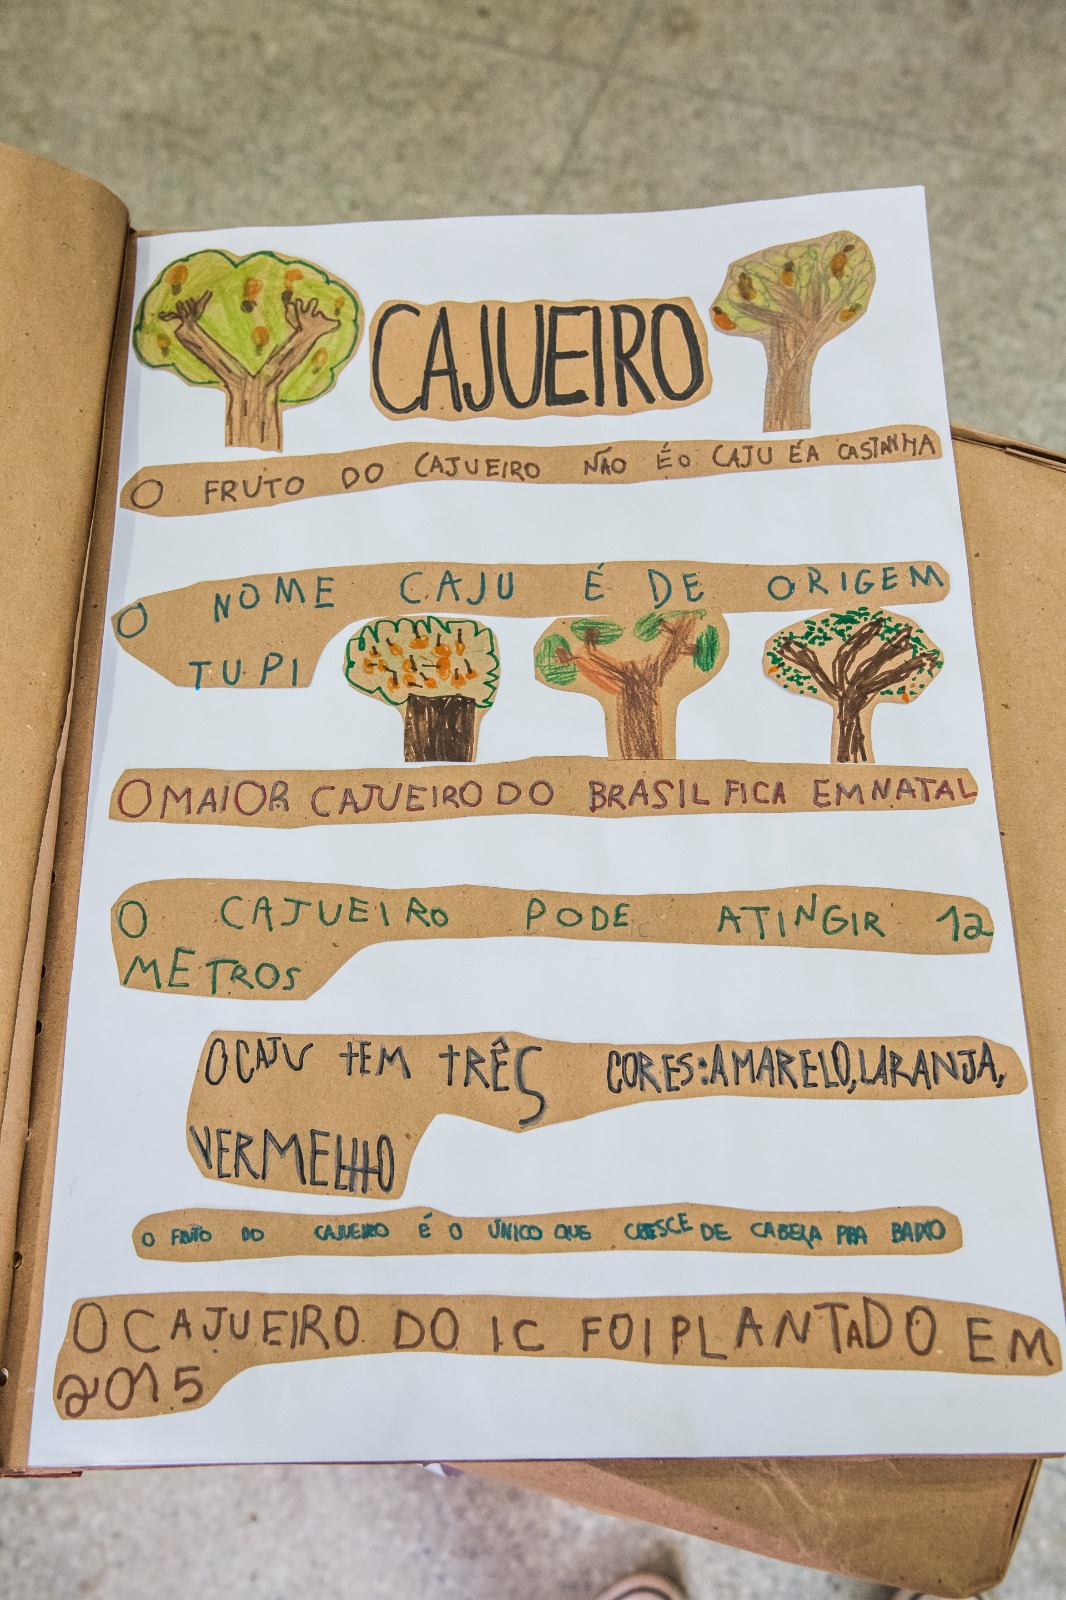 CAJUEIRO
O FRUTO DO CAJUEIRO NÃO É O CAJU É A CASTANHA
O NOME CAJU É DE ORIGEM
TUPI
O MAIOR CAJUEIRO DO BRASIL FICA EM NATAL
O CAJUEIRO PODE ATINGIR 12
METROS
O CAJU TEM TRÊS CORES: AMARELO, LARANJA,
VERMELHO
O FRUTO DO CAJUEIRO É O ÚNICO QUE CRESCE DE CABEÇA PRA BAIXO
O CAJUEIRO DO IC FOI PLANTADO EM
2015